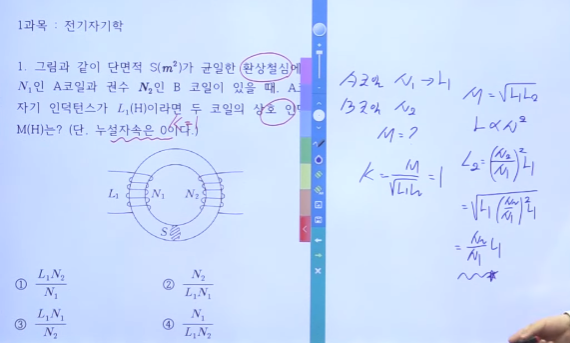 1과목 : 전기자기학
1. 그림과 같이 단면적 S(m²)가 균일한 환상철심에
N₁인 A코일과 권수 N₂인 B 코일이 있을 때, A코
자기 인덕턴스가 L₁(H)이라면 두 코일의 상호 인
M(H)는? (단, 누설자속은 0이다.)
L₁ N₁ N₂
S
① L₁N₂/N₁ ② N₂/L₁N₁
③ L₁N₁/N₂ ④ N₁/L₁N₂
A코일 N₁ → L₁
B코일 N₂
M = ?
K = M/√L₁L₂ = 1
M = √L₁L₂
L ∝ N²
L₂ = (N₂/N₁)² L₁
= √L₁(N₂/N₁)²L₁
= N₂/N₁ L₁